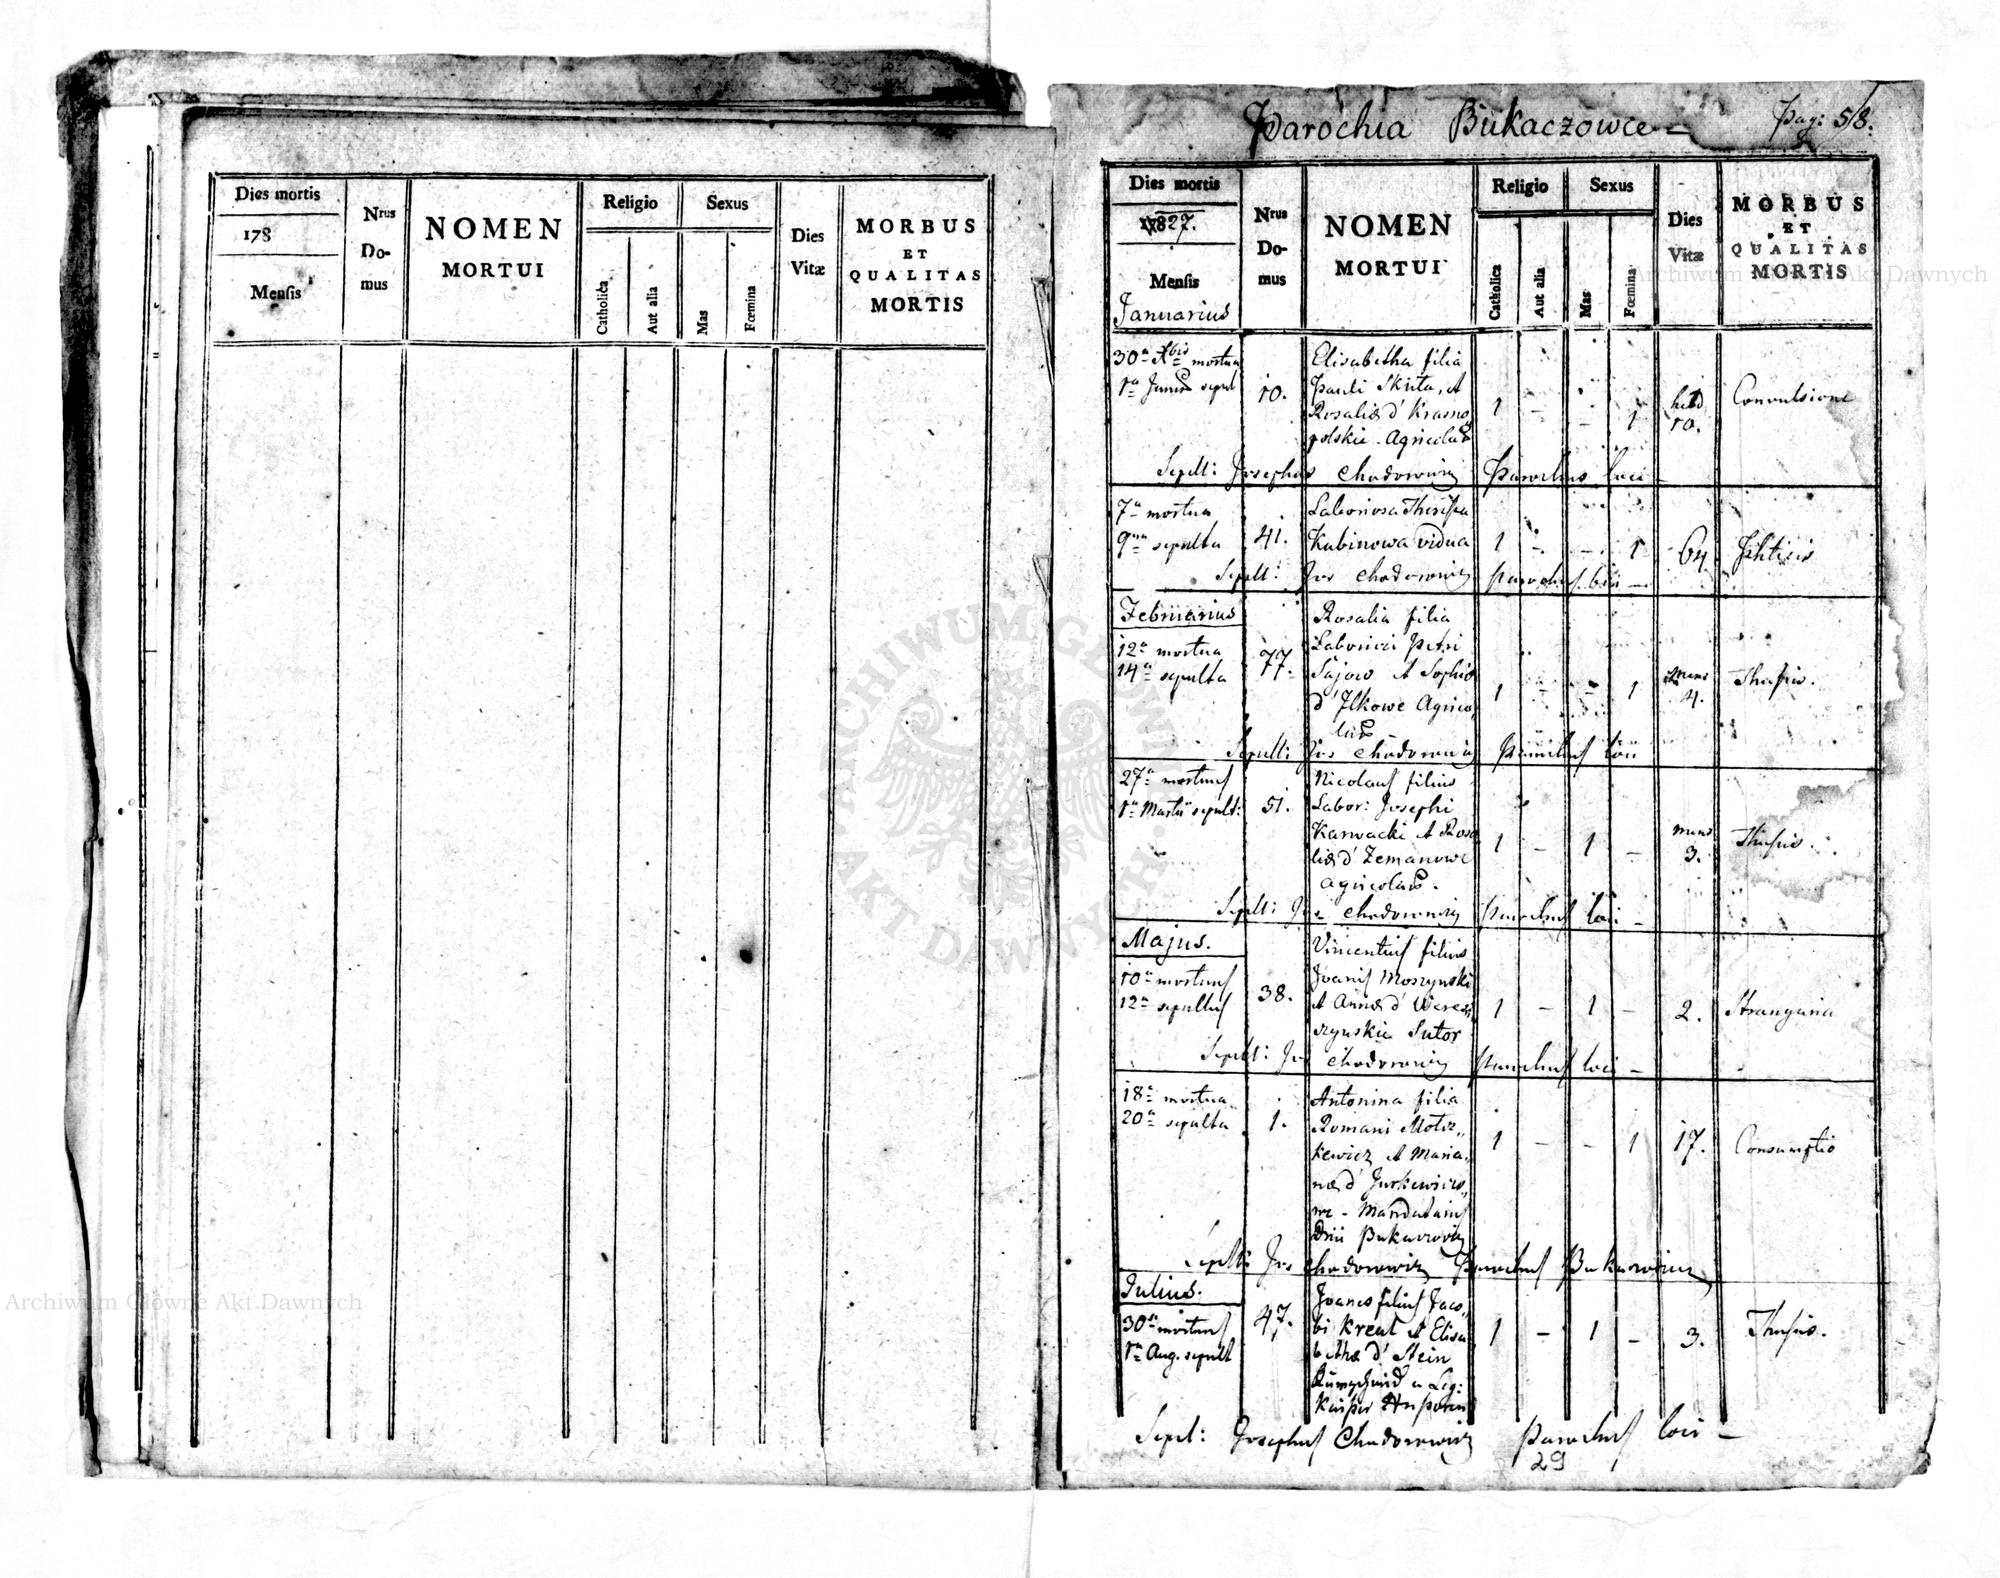 Dies mortis
178
Mensis
Nrus
Do-
mus
NOMEN
MORTUI
Religio
Catholica
Aut alia
Sexus
Mas
Fœmina
Dies
Vitæ
MORBUS
ET
QUALITAS
MORTIS
Parochia Bukaczowce
Pag: 58.
Dies mortis
1827.
Mensis
Januarius
Nrus
Do-
mus
NOMEN
MORTUI
Religio
Catholica
Aut alia
Sexus
Mas
Fœmina
Dies
Vitæ
MORBUS
ET
QUALITAS
MORTIS
30a Xbris mortua
1a sepult
10.
Elisabetha filia
Pauli Skuta, et
Rosaliæ d' Krasno
polskie Agricolæ
1 - - 1
hebd
10.
Convulsione
Sepelt: Josephus Chodorowicz Parochus loci
7a mortua
9na sepulta
41.
Laboriosa Theresia
Kubinowa vidua
1 - - 1
64
Phtisis
Sepelt: Jos Chodorowicz Parochus loci
Februarius
12a mortua
14a sepulta
77.
Rosalia filia
Laboriosi Petri
Sajow et Sophiæ
d' Ilkowe Agrico
læ
1 - - 1
mens
4.
Thusis.
Sepelt: Jos Chodorowicz Parochus loci
27a mortuus
1a Martii sepult:
51.
Nicolaus filius
Labor: Josephi
Karwacki et Rosa
liæ d' Zemanowe
agricolæ.
1 - 1 -
mens
3.
Thusis.
Sepelt: Jos Chodorowicz Parochus loci
Majus.
10a mortuus
12a sepultus
38.
Vincentius filius
Joanis Moszynski
et Annæ d' Weresz
czynskie Sutor
1 - 1 -
2.
Stranguria
Sepelt: Jos Chodorowicz Parochus loci
18a mortua
20a sepulta
1.
Antonina filia
Romani Motz„
kewicz et Maria„
næ d' Jurkewiczo„
we - Mandatarius
Dnii Bukaczoviec
1 - - 1
17.
Consumptio
Sepelt: Jos Chodorowicz Parochus Bukaczowiec
Julius.
30a mortuus
1a Aug. sepult
47.
Joanes filius Jaco„
bi Kreul et Elisa
bethæ d' Stein
1 - 1 -
3.
Thusis.
Sepel: Josephus Chodorowicz Parochus loci
29
ARCHIWUM GŁÓWNE AKT DAWNYCH
Archiwum Główne Akt Dawnych
Archiwum Główne Akt Dawnych